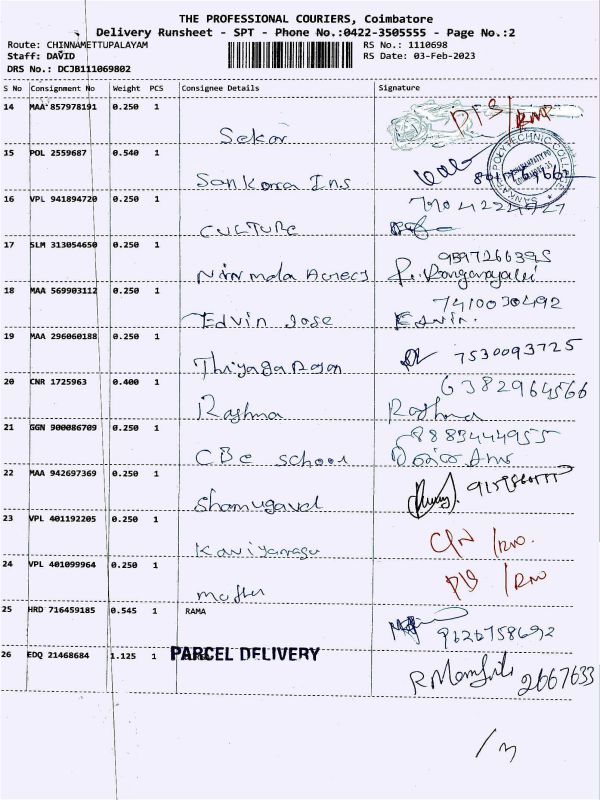 THE PROFESSIONAL COURIERS, Coimbatore
Delivery Runsheet - SPT - Phone No.:0422-3505555 - Page No.:2
Route: CHINNAMETTUPALAYAM RS No.: 1110698
Staff: DAVID RS Date: 03-Feb-2023
DRS No.: DCJB111069802
S No Consignment No Weight PCS Consignee Details Signature
14 MAA 857978191 0.250 1
Sekar
15 POL 2559687 0.540 1
Sankara Ins
16 VPL 941894720 0.250 1
CULTURE
17 SLM 313054650 0.250 1
Nirmala 9597266395
18 MAA 569903112 0.250 1
Edvin Jose 7410030492
Edwin.
19 MAA 296060188 0.250 1
Thiyagarajan 7530093725
20 CNR 1725963 0.400 1
Rashma 6382964566
Rashma
21 GGN 900086709 0.250 1
CBC school 8883444955
22 MAA 942697369 0.250 1
Shamugavel
23 VPL 401192205 0.250 1
Kaviyarasu
24 VPL 401099964 0.250 1
25 HRD 716459185 0.545 1 RAMA
9626758692
26 EDQ 21468684 1.125 1 PARCEL DELIVERY
2667633